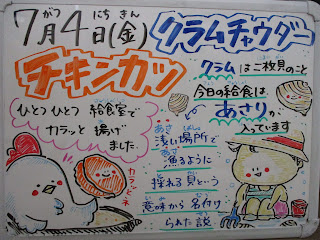 7月4日(金) クラムチャウダー
がつ にち きん
チキンカツ
クラムは二枚貝のこと
今日の給食は
あさりが
入っています
ひとつ ひとつ 給食室で
カラッと 揚げ
ました。
カラッとネ
浅い場所で
あさ ばしょ
漁るように
あさ
採れる貝という
意味から 名付け
られた説